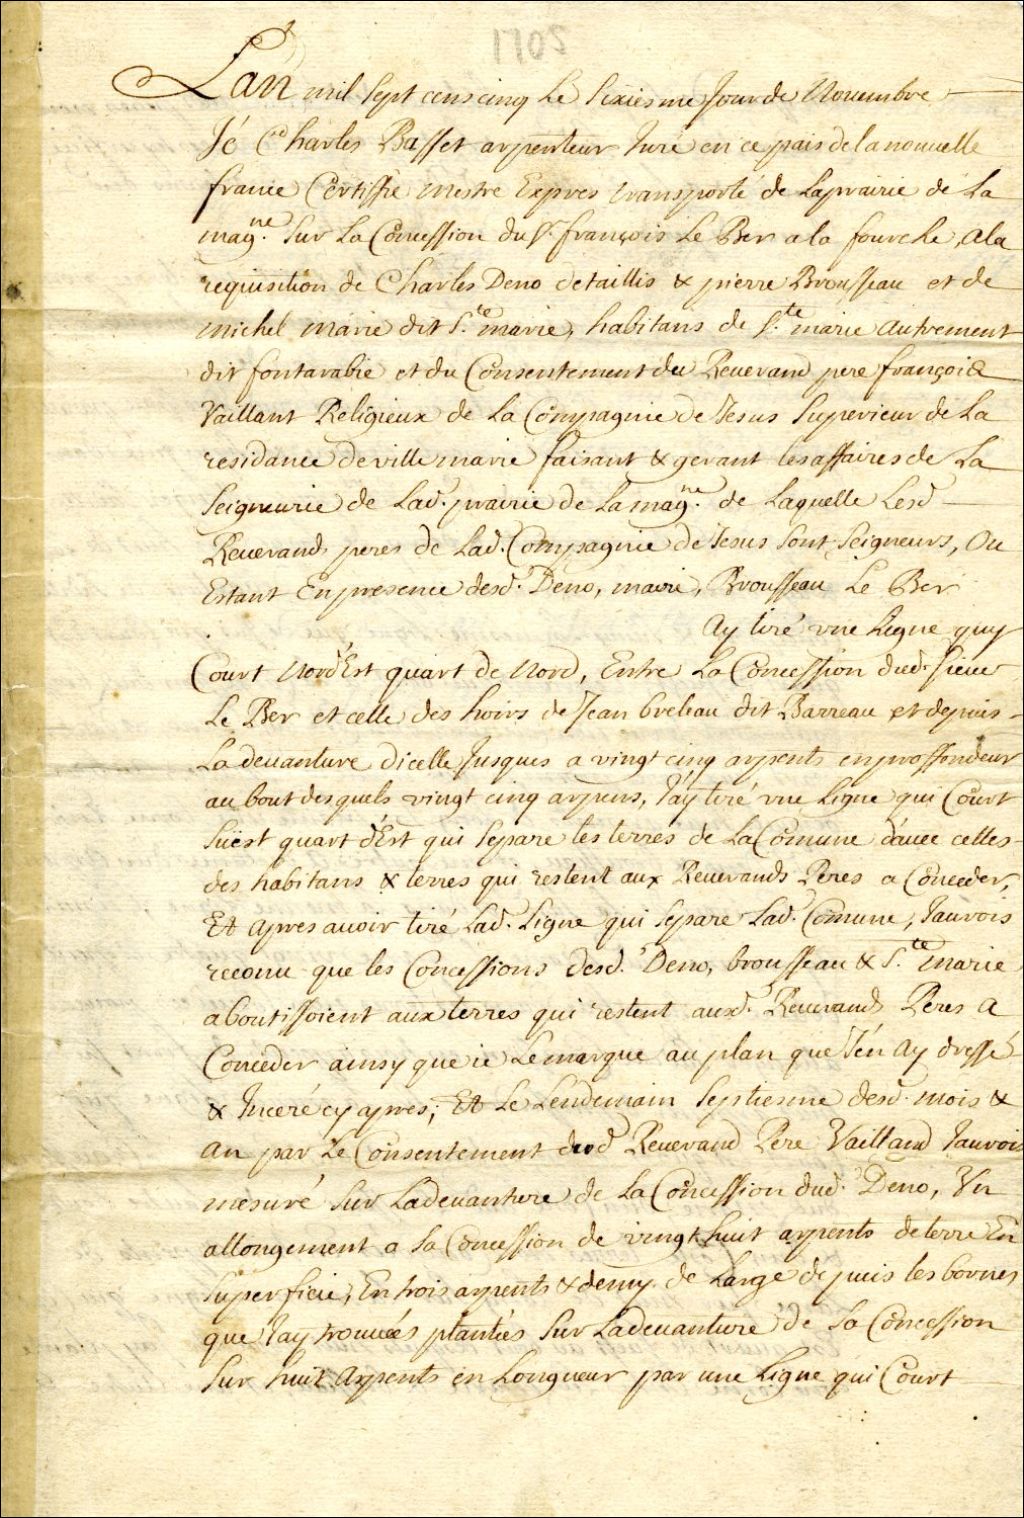 Lan mil sept cens cinq Le Sixiesme Jour de Nouembre
Jé Charles Basset arpenteur Juré en ce pais de la nouuelle
france Certiffie mestre Expres transporté de Laprairie de La
mag.ne Sur La Concession du Sr. françois Le Ber a la fourche, a la
requisition de Charles Deno detaillis & pierre Brousseau et de
michel marie dit S.te marie, habitans de S.te marie autrement
dit fontarabie et du Consentement du Reuerand pere françois
Vaillant Religieux de la Compagnie de Jesus Superieur de La
residance de villemarie faisant & gerant les affaires de La
Seigneurie de Lad. prairie de La mag.ne de Laquelle Lesd
Reuerands peres de Lad. Compagnie de Jesus Sont Seigneurs, Ou
Estant En presence desd. Deno, marie, Brousseau Le Ber
Ay tiré vne Ligne quy
Court Nord Est quart de Nord, Entre La Concession dud. Sieur
Le Ber et celle des hoirs de Jean brebau dit Barreau et depuis
La deuanture dicelle Jusques a vingt cinq arpents en proffondeur
au bout desquels vingt cinq arpens, J'ay tiré vne Ligne qui Court
Suest quart d'Est qui Separe les terres de La Comune d'auec celles
des habitans & terres qui restent aux Reuerands Peres a Conceder,
Et apres auoir tiré Lad. Ligne qui Separe Lad. Comune, Jaurois
reconu que les Concessions desd. Deno, brousseau & S.te marie
aboutissoient aux terres qui restent auxd. Reuerands Peres a
Conceder ainsy que ie Le marque au plan que J'en ay dressé
& Inceré cy apres; Et Le Lendemain Septiesme desd. mois &
an par Le Consentement dud Reuerand Pere Vailland Jaurois
mesuré Sur La deuanture de La Concession dud. Deno, Vn
allongement a Sa Concession de vingt huit arpents de terre En
Superficie, En trois arpents & demy de Large depuis les bornes
que Jay trouuées plantées Sur La deuanture de Sa Concession
Sur huit Arpents en Longueur par une Ligne qui Court